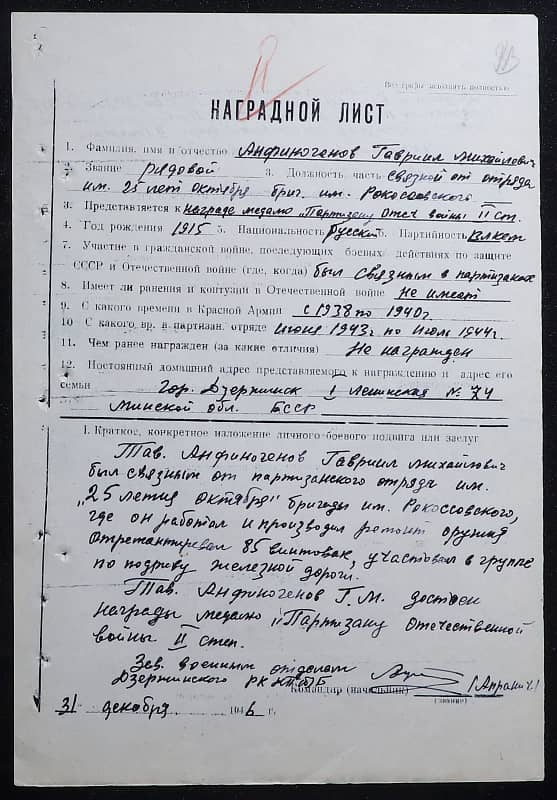 Все графы заполнять полностью
НАГРАДНОЙ ЛИСТ
1. Фамилия, имя и отчество Анфиногенов Гавриил Михайлович
2. Звание рядовой 3. Должность часть связной от отряда
им. 25 лет октября бриг. им. Рокоссовского
3. Представляется к награде медалью „Партизану Отеч войны II ст.
4. Год рождения 1915 5. Национальность Русский 6. Партийность ВЛКСМ
7. Участие в гражданской войне, последующих боевых действиях по защите
СССР и Отечественной войне (где, когда) был связным в партизанах
8. Имеет ли ранения и контузии в Отечественной войне не имеет
9. С какого времени в Красной Армии с 1938 по 1940 г.
10 С какого вр. в партизан. отряде Июня 1943 г. по Июль 1944 г.
11. Чем ранее награжден (за какие отличия) Не награжден
12. Постоянный домашний адрес представляемого к награждению и адрес его
семьи гор. Дзержинск I Ленинская № 74
Минской обл. БССР
I. Краткое, конкретное изложение личного боевого подвига или заслуг
Тов. Анфиногенов Гавриил Михайлович
был связным от партизанского отряда им.
„25 летия октября" бригады им. Рокоссовского,
где он работал и производил ремонт оружия
Отремантировал 85 винтовок, участвовал в группе
по подрыву железной дороги.
Тов. Анфиногенов Г. М. достоен
награды медалью „Партизану Отечественной
войны II степ.
Зав. военным отделом
Дзержинского РК КП(б)Б
Командир (начальник)
(звание)
31 декабря 1946 г.